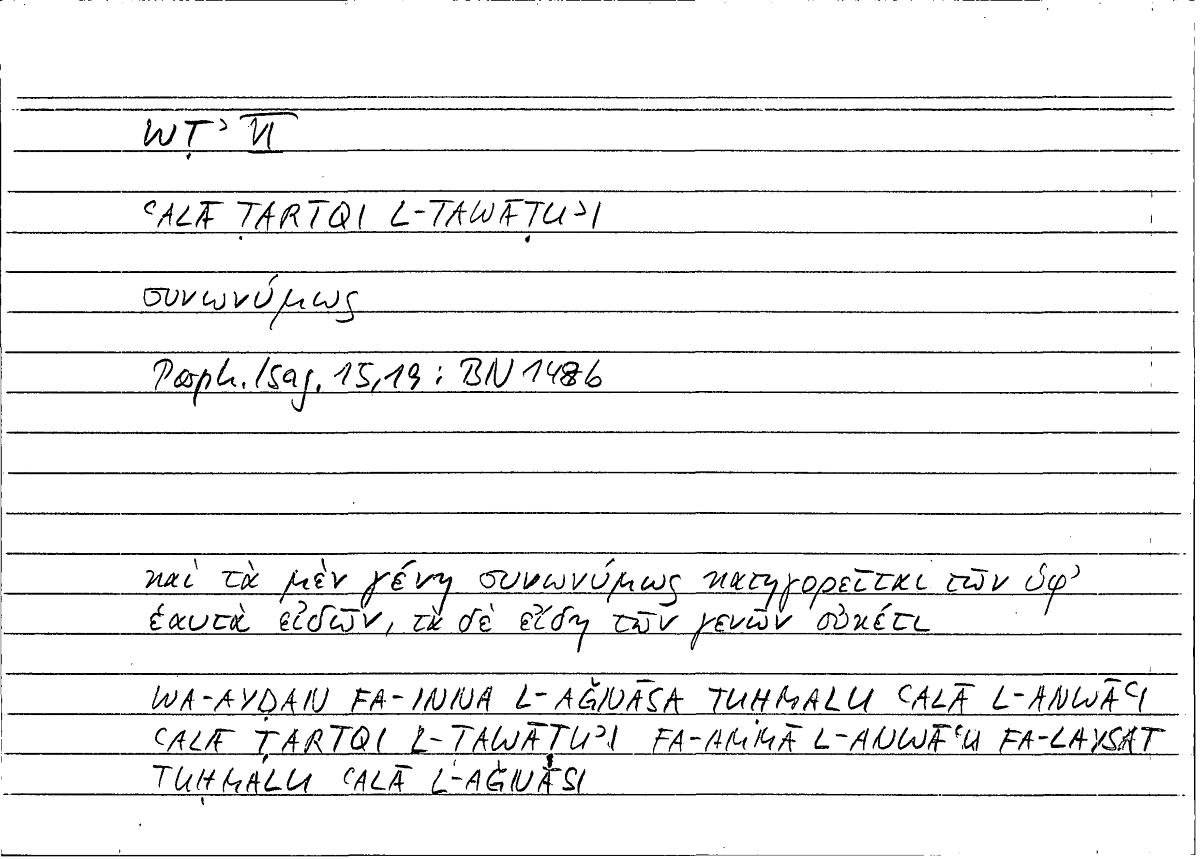 WṬʾ VI
ʿALĀ ṬARĪQI L-TAWĀṬUʾI
συνωνύμως
Porph. Isag. 15,19 : BN 148b
καὶ τὰ μὲν γένη συνωνύμως κατηγορεῖται τῶν ὑφ᾽
ἑαυτὰ εἰδῶν, τὰ δὲ εἴδη τῶν γενῶν οὐκέτι
WA-AYḌAN FA-INNA L-AǦNĀSA TUḤMALU ʿALĀ L-ANWĀʿI
ʿALĀ ṬARĪQI L-TAWĀṬUʾI FA-AMMĀ L-ANWĀʿU FA-LAYSAT
TUḤMALU ʿALĀ L-AǦNĀSI